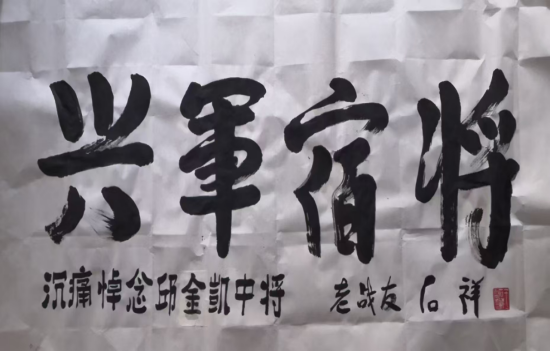 兴軍宿将
沉痛悼念邱金凯中将 老战友 石祥